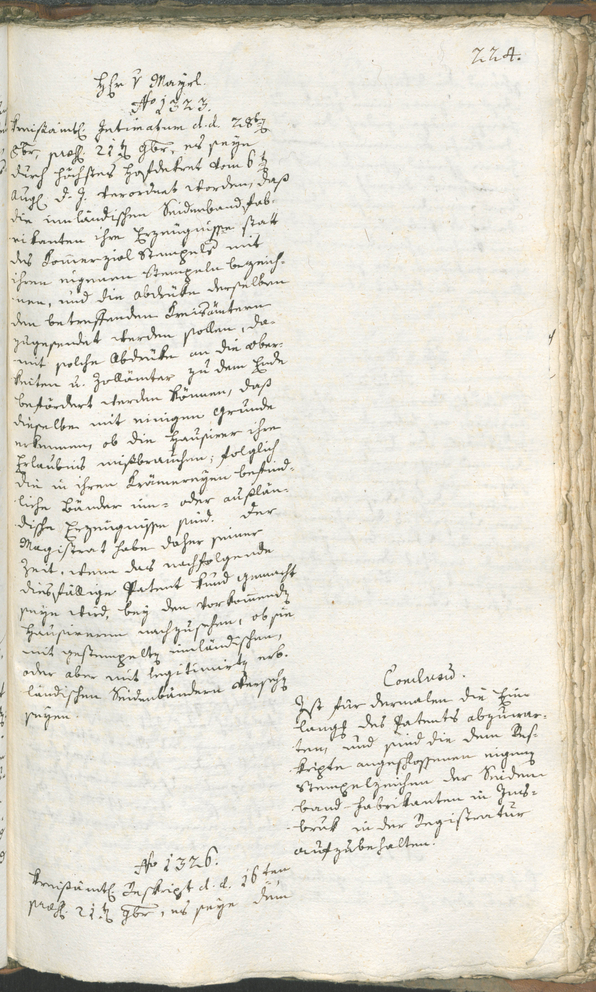 224.
Hr. v Mayrl.
No 1323.
Kreisämtl. Intimatum d. d. 28t
8br., praes. 21t 9br., es seye
durch höchstes Hofdekret vom 6t
Aug. d. J. verordnet worden, daß
die innländischen Seidenband fab-
rikanten ihre Erzeugnisse statt
des Komerzial Stempels mit
ihren eigenen Stempeln bezeich-
nen, und die abdrüke derselben
den betreffenden Kreisämtern
zugesendet werden sollen, da-
mit solche Abdrüke an die Ober-
keiten u. Zollämter zu dem Ende
befördert werden können, daß
dieselbe mit einigen Grunde
erkennen, ob die Hausirer ihre
Erlaubnis mißbrauchen; folglich
die in ihren Krämereyen befind-
liche Bänder inn- oder auslän-
dische Erzeugnisse sind. Der
Magistrat habe daher seiner
Zeit, wenn das nachfolgende
diesfällige Patent kund gemacht
seyn wird, bey den vorkommend
Hausirern nachzusehen, ob sie
mit gestempelt innländischen,
oder aber mit legitimirt erb-
ländischen Seidenbändern versehn
seyen.
Conclusum.
Ist für dermalen die Ein-
langg des Patents abzuwar-
ten, und sind die dem Res-
kripte angeschlossenen eigenen
Stempelzeichen der Seiden
band fabrikanten in Ins-
bruk in der Registratur
aufzubehalten.
No 1326.
Kreisämtl. Reskript d. d. 16ten
praes. 21t 9br., es seye dem